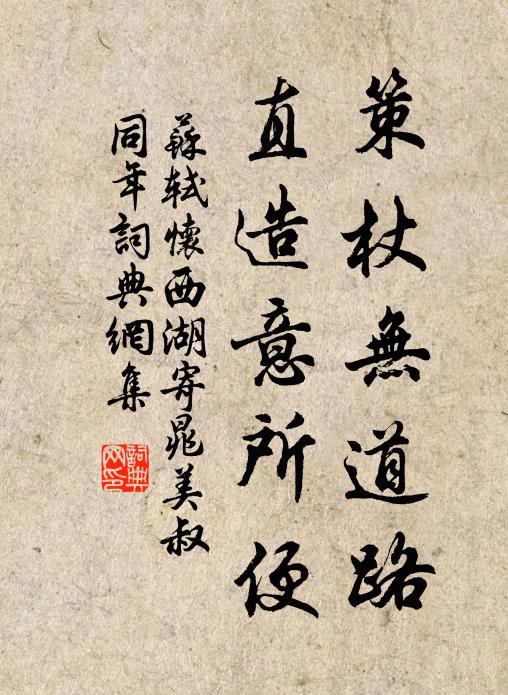 策杖無道路
直造意所便
蘇軾懷西湖寄晁美叔
同年詞典網集
詞典
网印